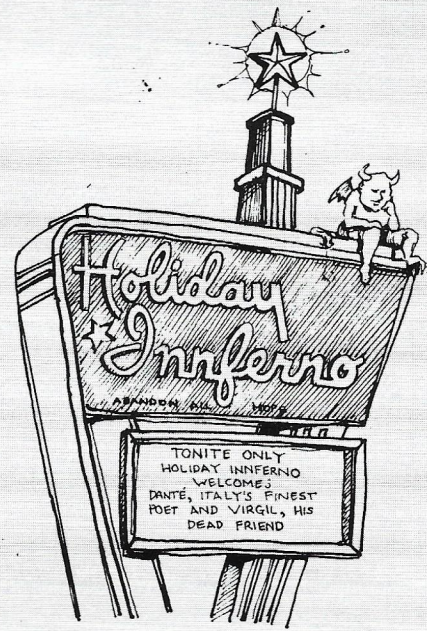 Holiday
Innferno
ABANDON ALL HOPE
TONITE ONLY
HOLIDAY INNFERNO
WELCOMES
DANTÉ, ITALY'S FINEST
POET AND VIRGIL, HIS
DEAD FRIEND